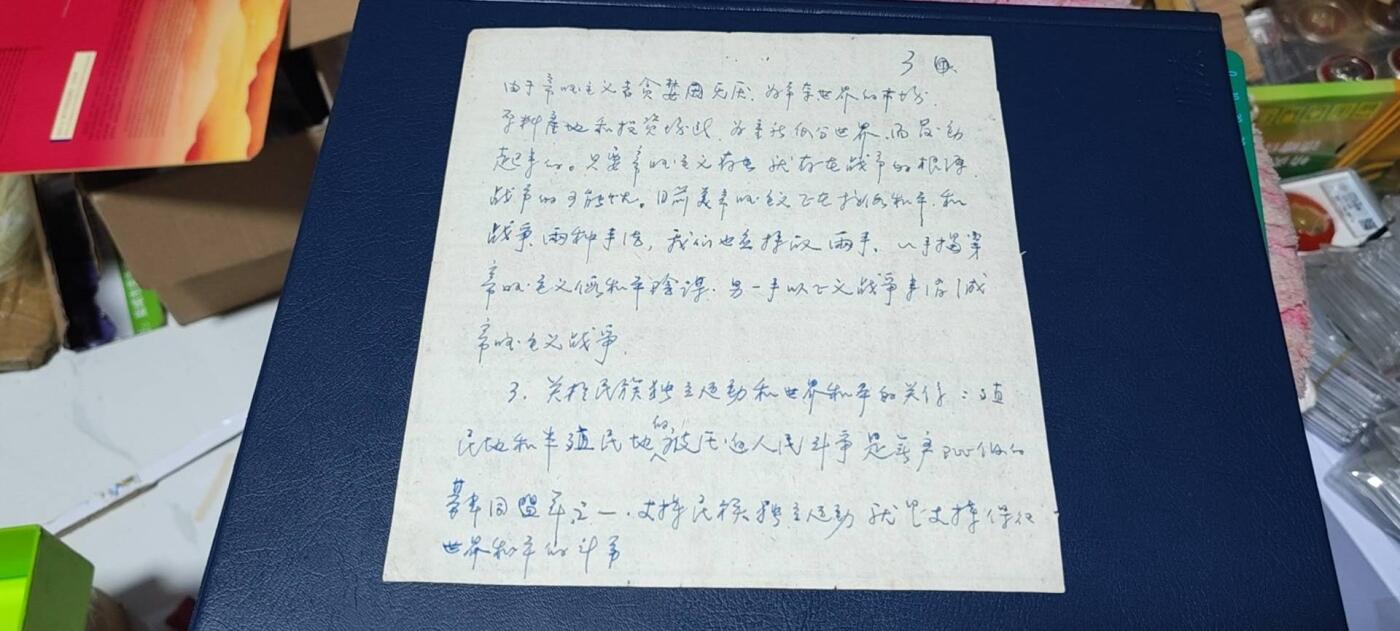 3
由于帝国主义者贪婪无厌,为争夺世界的市场,
原料产地和投资场所,为重新瓜分世界,而发动
起来的。只要帝国主义存在就存在战争的根源,
战争的可能性。目前美帝国主义正在玩弄和平和
战争两种手法,我们也要採取两手,一手揭穿
帝国主义假和平陰谋,另一手以正义战爭来消灭
帝国主义战爭。
3. 关於民族独立运动和世界和平的关係:殖
民地和半殖民地的被压迫人民斗争是无产阶级的
基本同盟军之一,支持民族独立运动就是支持保衛
世界和平的斗争